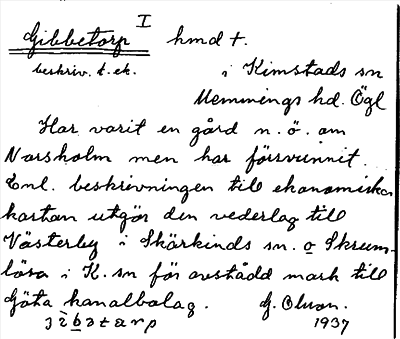 I
Gibbetorp hmd t.
beskriv. t. ek. i Kimstads sn
Memmings hd. Ögl
Har varit en gård n. ö. om
Norsholm men har försvunnit.
Enl. beskrivningen till ekonomiska
kartan utgör den vederlag till
Västerby i Skärkinds sn. o Skrum-
lösa i K. sn för avstådd mark till
Göta kanalbolag. G. Olson.
1937